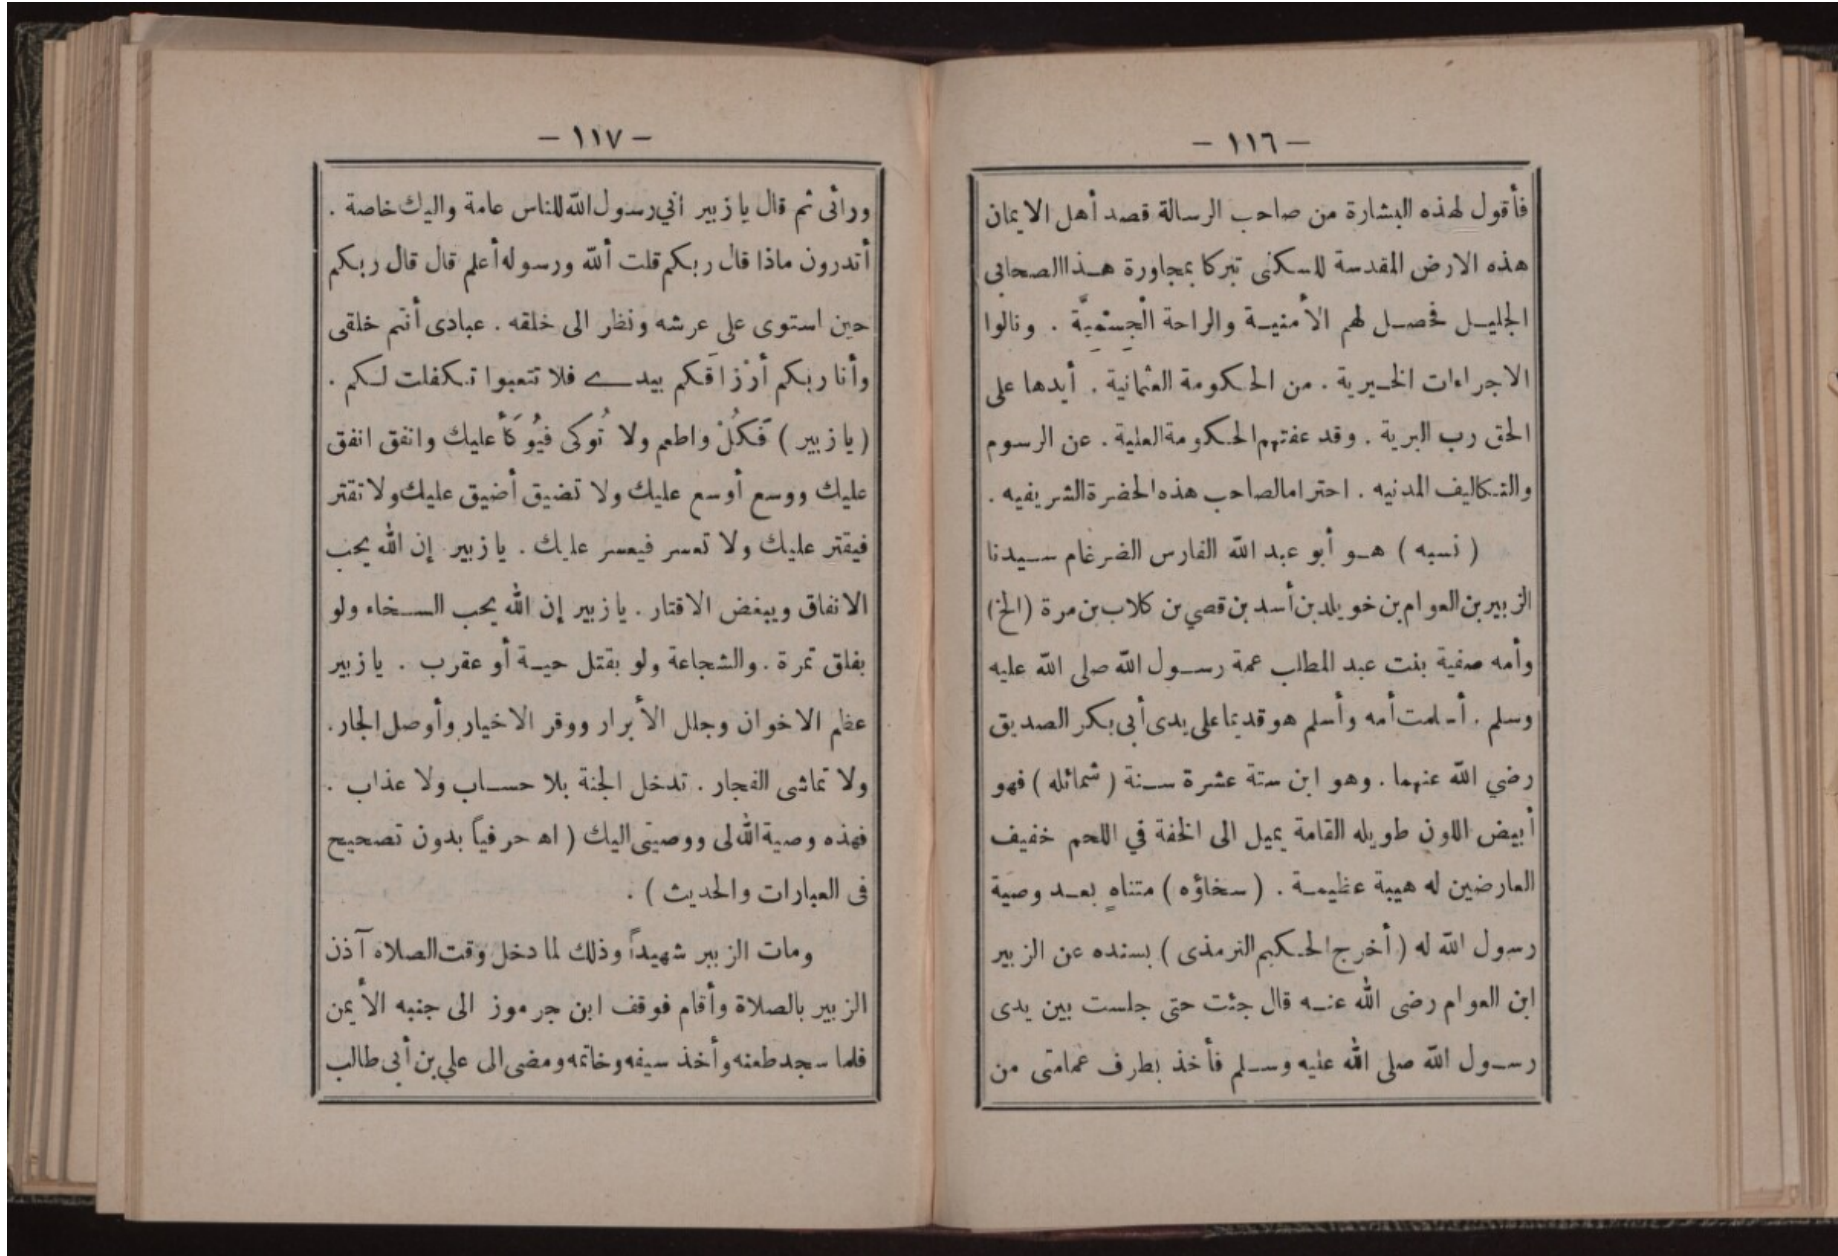 — ١١٦ —
فأقول لهذه البشارة من صاحب الرسالة قصد أهل الايمان
هذه الارض المقدسة للسكنى تبركا بمجاورة هذا الصحابي
الجليل فحصل لهم الأمنية والراحة الْجِسْمِيَّة . ونالوا
الاجراءات الخيرية . من الحكومة العثمانية . أيدها على
الحق رب البرية . وقد عفتهم الحكومة العلية . عن الرسوم
والتكاليف المدنيه . احتراما لصاحب هذه الحضرة الشريفيه .
( نسبه ) هو أبو عبد الله الفارس الضرغام سيدنا
الزبير بن العوام بن خويلد بن أسد بن قصي بن كلاب بن مرة (الخ)
وأمه صفية بنت عبد المطلب عمة رسول الله صلى الله عليه
وسلم . أسلمت أمه وأسلم هو قديما على يدى أبى بكر الصديق
رضي الله عنهما . وهو ابن ستة عشرة سنة ( شمائله ) فهو
أبيض اللون طويله القامة يميل الى الخفة في اللحم خفيف
العارضين له هيبة عظيمة . ( سخاؤه ) متناهٍ بعد وصية
رسول الله له ( أخرج الحكيم الترمذى ) بسنده عن الزبير
ابن العوام رضى الله عنه قال جئت حتى جلست بين يدى
رسول الله صلى الله عليه وسلم فأخذ بطرف عمامتى من
— ١١٧ —
ورائى ثم قال يا زبير اني رسول الله للناس عامة واليك خاصة .
أتدرون ماذا قال ربكم قلت ألله ورسوله أعلم قال قال ربكم
حين استوى على عرشه ونظر الى خلقه . عبادى أنتم خلقى
وأنا ربكم أرْزَاقكم بيدے فلا تتعبوا تكفلت لكم .
( يا زبير ) فَكُلْ واطعم ولا تُوكى فيُوكَأ عليك وانفق انفق
عليك ووسع أوسع عليك ولا تضيق أضيق عليك ولا تقتر
فيقتر عليك ولا تعسر فيعسر عليك . يا زبير إن الله يحب
الانفاق ويبغض الاقتار . يا زبير إن الله يحب السخاء ولو
بفلق تمرة . والشجاعة ولو بقتل حية أو عقرب . يا زبير
عظم الاخوان وجلل الأبرار ووقر الاخيار وأوصل الجار .
ولا تماشى الفجار . تدخل الجنة بلا حساب ولا عذاب .
فهذه وصية الله لى ووصيتى اليك ( اه حرفياً بدون تصحيح
فى العبارات والحديث ) .
ومات الزبير شهيداً وذلك لما دخل وقت الصلاه آذن
الزبير بالصلاة وأقام فوقف ابن جرموز الى جنبه الأيمن
فلما سجد طعنه وأخذ سيفه وخاتمه ومضى الى علي بن أبى طالب